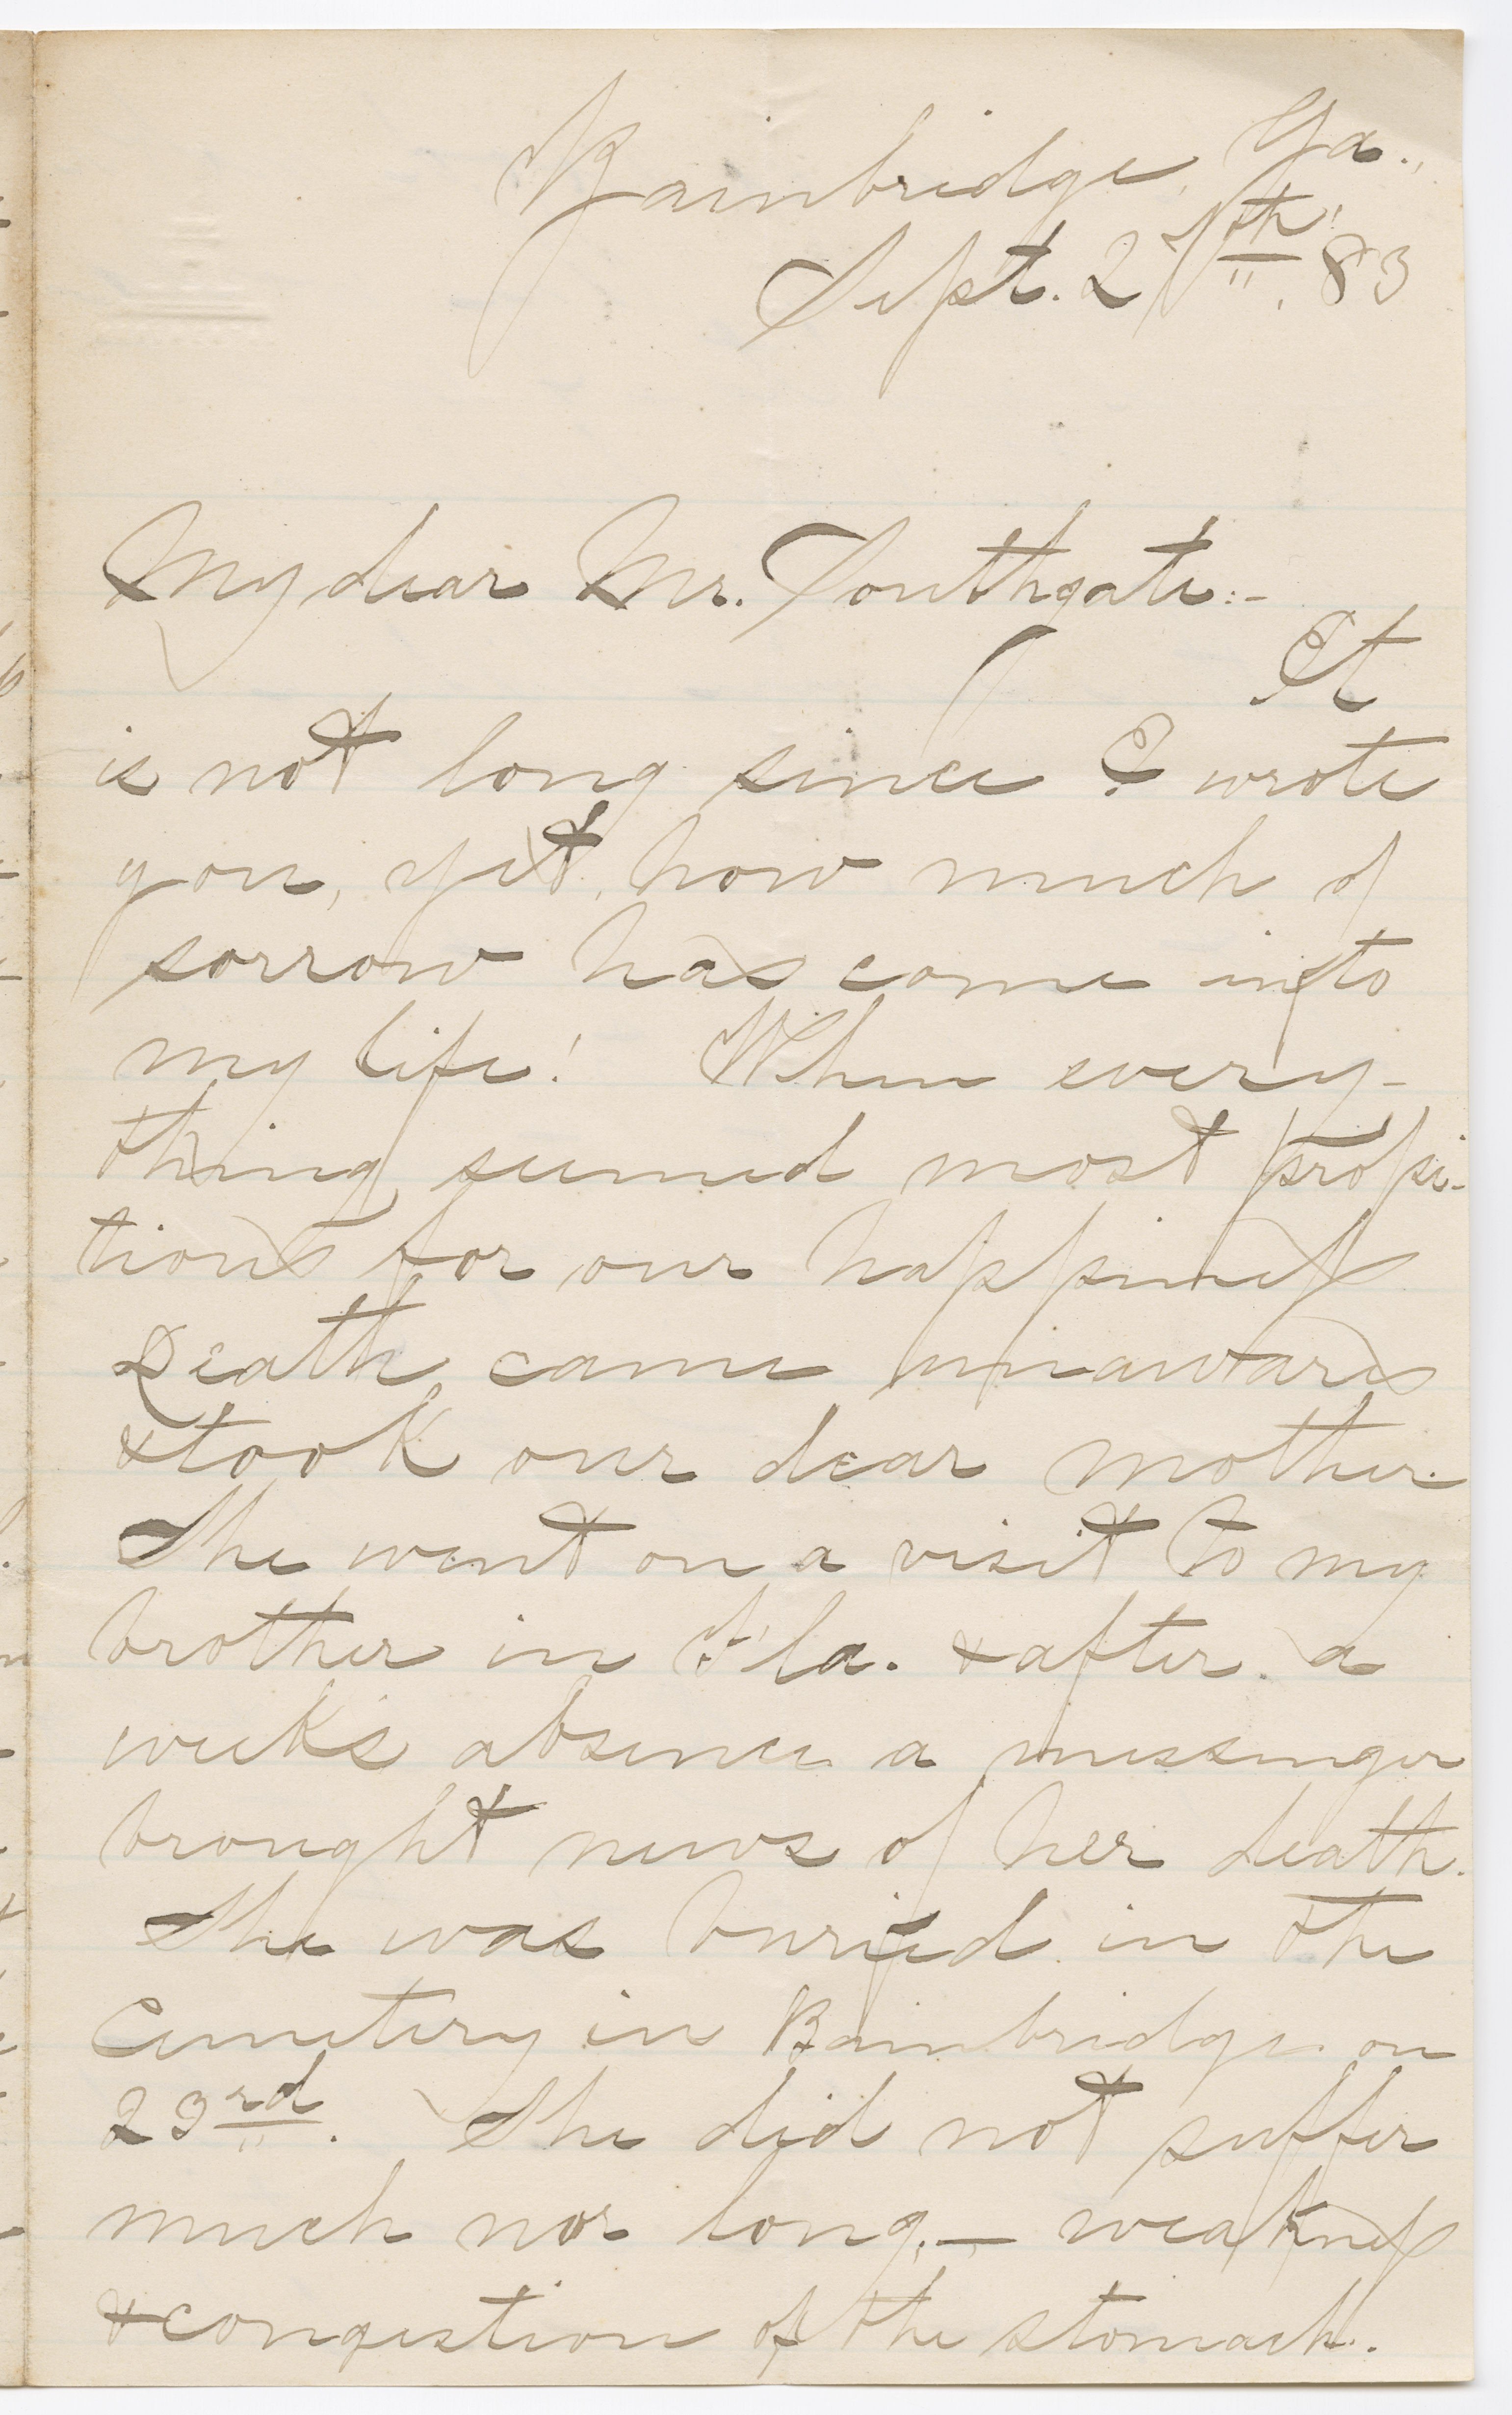 Bainbridge, Ga.,
Sept. 27th, 83
My dear Mr. Southgate:-
It
is not long since I wrote
you, yet, how much of
sorrow has come into
my life! When every-
thing seemed most propi-
tious for our happiness
Death came unawares
& took our dear mother.
She went on a visit to my
brother in Fla. & after a
week's absence a messenger
brought news of her death.
She was buried in the
Cemetery in Bainbridge on
23rd. She did not suffer
much nor long,— weakness
& congestion of the stomach.